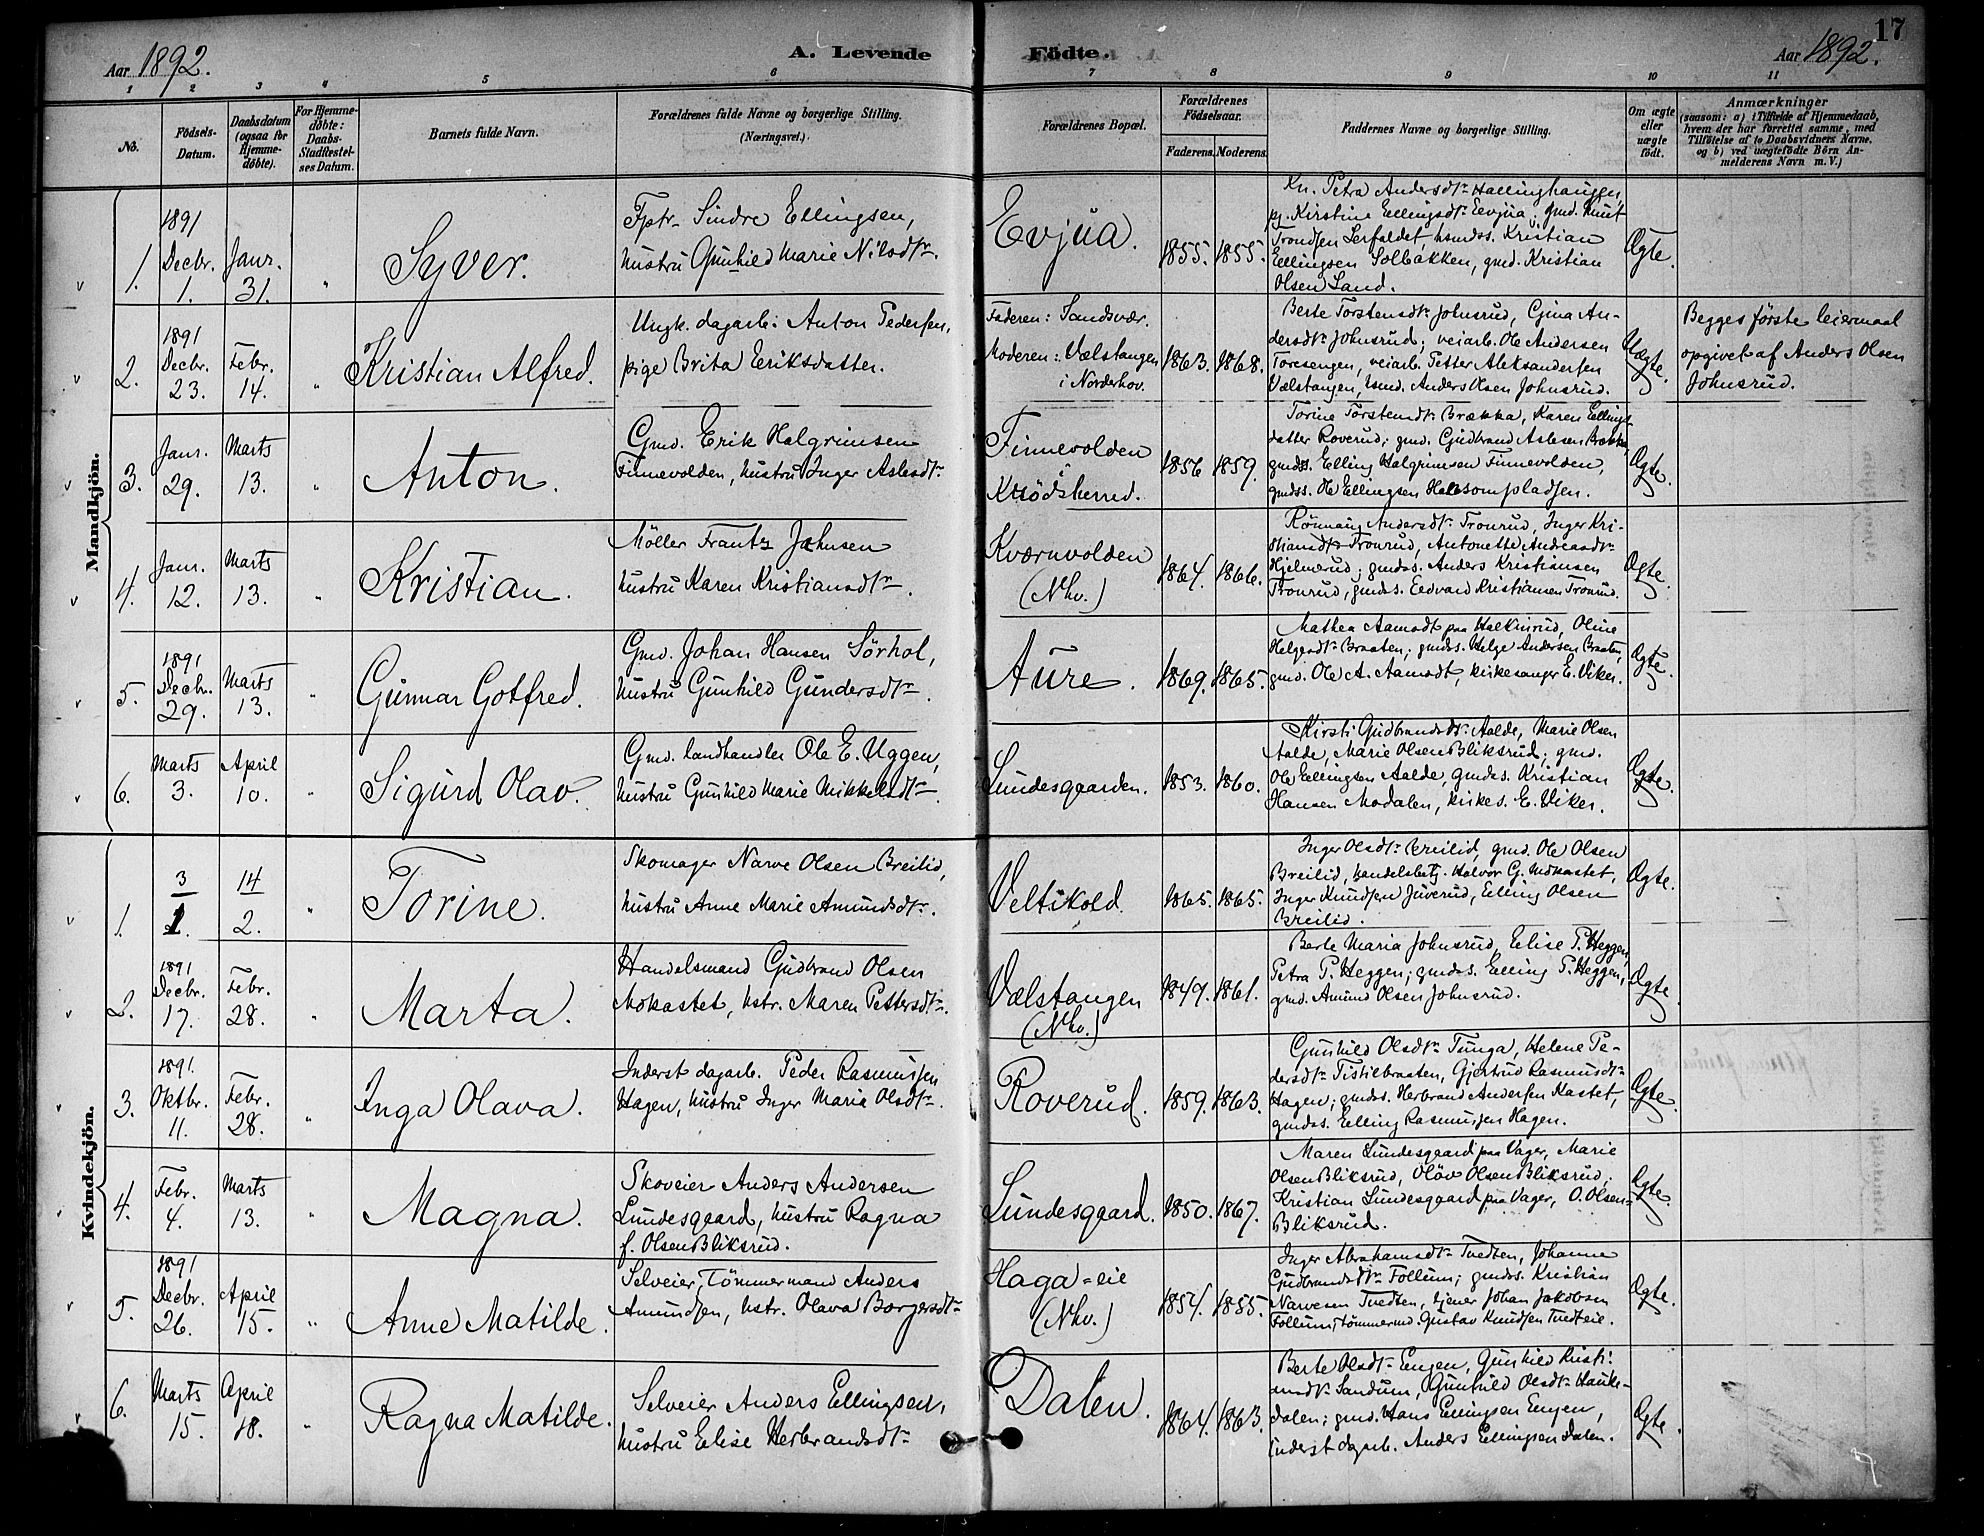 17
Aar 1892.
A. Levende
Födte.
Aar 1892.
1 2 3 4 5 6 7 8 9 10 11
No.
Födsels-Datum.
Daabsdatum (ogsaa for Hjemme-döbte).
For Hjemme-döbte: Daabs-Stadfæstel-ses Datum.
Barnets fulde Navn.
Forældrenes fulde Navne og borgerlige Stilling. (Næringsvei.)
Forældrenes Bopæl.
Forældrenes Födselsaar.
Faderens. Moderens.
Faddernes Navne og borgerlige Stilling.
Om ægte eller uægte födt.
Anmærkninger
(saasom: a) i Tilfælde af Hjemmedaab,
hvem der har forrettet samme, med
Tilföielse af to Daabsvidners Navne,
og b) ved uægtefödte Börn An-
melderens Navn m. V.)
Mandkjön.
1.
1891
Decbr.
1.
Janr.
31.
Syver.
Sindre Ellingsen,
hustru Gunhild Marie Nilsdtr.
Evjua.
1855. 1855.
Kn. Petra Andersdtr Hallinghauggen,
pg. Kirstine Ellingsdtr Evjua; gmd. Knut
Trondsen Lerfaldet, husmds. Kristian
Ellingsen Solbakken, gmd. Kristian
Olsen Land.
Ægte.
2.
1891
Decbr.
23.
Febr.
14.
Kristian Alfred.
Ungk. dagarb. Anton Pedersen,
pige Brita Eriksdatter.
Faderen: Sandsvær.
Moderen: Vælstangen
i Norderhov.
1863. 1868.
Berte Torstensdtr Johnsrud, Gina An-
dersdtr Johnsrud; veiarb. Ole Andersen
Toresengen, veiarb. Petter Aleksandersen
Vælstangen, husmd. Anders Olsen Johnsrud.
Uægte.
Begges förste leiermaal
opgivet af Anders Olsen
Johnsrud.
3.
Janr.
29.
Marts
13.
Anton.
Gmd. Erik Halgrimsen
Finnevolden, hustru Inger Aslesdtr
Finnevolden
Krödsherred.
1856 1859.
Torine Torstensdtr Brækka, Karen Ellings-
datter Roverud; gmd. Gudbrand Aslesen Brækka,
gmds. Elling Halgrimsen Finnevolden,
gmdss. Ole Ellingsen Halsompladsen.
Ægte.
4.
Janr.
12.
Marts
13.
Kristian.
Möller Frantz Johnsen
hustru Karen Kristiansdtr.
Kværnvolden
(Nhv.)
1864. 1866.
Rönnaug Andersdtr Tronrud, Inger Kri-
stiansdtr Tronrud, Antonette Andreasdtr
Hjelmerud; gmds. Anders Kristiansen
Tronrud, gmds. Edvard Kristiansen Tronrud.
Ægte.
5.
1891
Decbr.
29.
Marts
13.
Gunnar Gotfred.
Gmd. Johan Hansen Sörhol,
hustru Gunhild Gundersdtr
Aure.
1869. 1865.
Mathea Aamodt paa Halkinrud, Oline
Helgesdtr Braaten; gmds. Helge Andersen Braaten,
gmd. Ole A. Aamodt, kirkesanger E. Viker.
Ægte.
6.
Marts
3.
April
10.
Sigurd Olav.
Gmd. landhandler Ole E. Uggen,
hustru Gunhild Marie Mikkelsdtr.
Lundesgaarden.
1853. 1860.
Kirsti Gudbrandsdtr Aalde, Marie Olsen
Aalde, Marie Olsen Bliksrud; gmd.
Ole Ellingsen Aalde, gmds. Kristian
Hansen Modalen, kirkes. E. Viker.
Ægte.
Kvindekjön.
1.
3
1.
14
2.
Torine.
Skomager Narve Olsen Breilid,
hustru Anne Marie Amundsdtr.
Veltikold.
1865. 1865.
Inger Olsdtr Breilid, gmd. Ole Olsen
Breilid, handelsbetj. Halvor G. Mokastet,
Inger Knudsen Juverud, Elling Olsen
Breilid.
Ægte.
2.
1891
Decbr.
17.
Febr.
28.
Marta.
Handelsmand Gudbrand Olsen
Mokastet, hstr. Maren Pettersdtr.
Vælstangen
(Nhv.)
1849. 1861.
Berte Maria Johnsrud, Elise P. Heggen,
Petra P. Heggen; gmds. Elling P. Heggen,
gmd. Amund Olsen Johnsrud.
Ægte.
3.
1891.
Oktbr.
11.
Febr.
28.
Inga Olava.
Inderst dagarb. Peder Rasmussen
Hagen, hustru Inger Maria Olsdtr.
Roverud.
1859. 1863.
Gunhild Olsdtr Tunga, Helene Pe-
dersdtr Tistiebraaten, Gjertrud Rasmusdtr
Hagen; gmds. Herbrand Andersen Kastet,
gmdss. Elling Rasmussen Hagen.
Ægte.
4.
Febr.
4.
Marts
13.
Magna.
Skoveier Anders Andersen
Lundesgaard, hustru Ragna
f. Olsen Bliksrud.
Lundesgaard.
1850. 1867.
Maren Lundesgaard paa Vager, Marie
Olsen Bliksrud, Olav Olsen Bliksrud,
Kristian Lundesgaard paa Vager, O. Olsen
Bliksrud.
Ægte.
5.
1891
Decbr.
26.
April
15.
Anne Matilde.
Selveier, Tömmermand Anders
Amundsen, hstr. Olava Borgersdtr
Haga-eie
(Nhv.)
1854. 1855.
Inger Abrahamsdtr Tvedten, Johanne
Gudbrandsdtr Follum; gmds. Kristian
Narvesen Tvedten, tjener Johan Jakobsen
Follum, tömmermd. Gustav Knudsen Tvedteie.
Ægte.
6.
Marts
15.
April
18.
Ragna Matilde.
Selveier Anders Ellingsen,
hustru Elise Herbrandsdtr
Dalen.
1864. 1863.
Berte Olsdtr Engen, Gunhild Kristi-
ansdtr Sandum, Gunhild Olsdtr Hauke-
dalen; gmd. Hans Ellingsen Engen,
inderst dagarb. Anders Ellingsen Dalen.
Ægte.